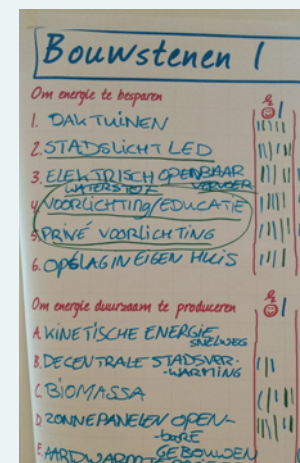 Bouwstenen 1
Om energie te besparen
1. DAKTUINEN
2. STADSLICHT LED
3. ELEKTRISCH OPENBAAR
WATERSTOF VERVOER
4. VOORLICHTING/EDUCATIE
5. PRIVÉ VOORLICHTING
6. OPSLAG IN EIGEN HUIS
Om energie duurzaam te produceren
A. KINETISCHE ENERGIE
SNELWEG
B. DECENTRALE STADSVER-
WARMING
C. BIOMASSA
D. ZONNEPANELEN OPEN-
bare
GEBOUWEN
E.